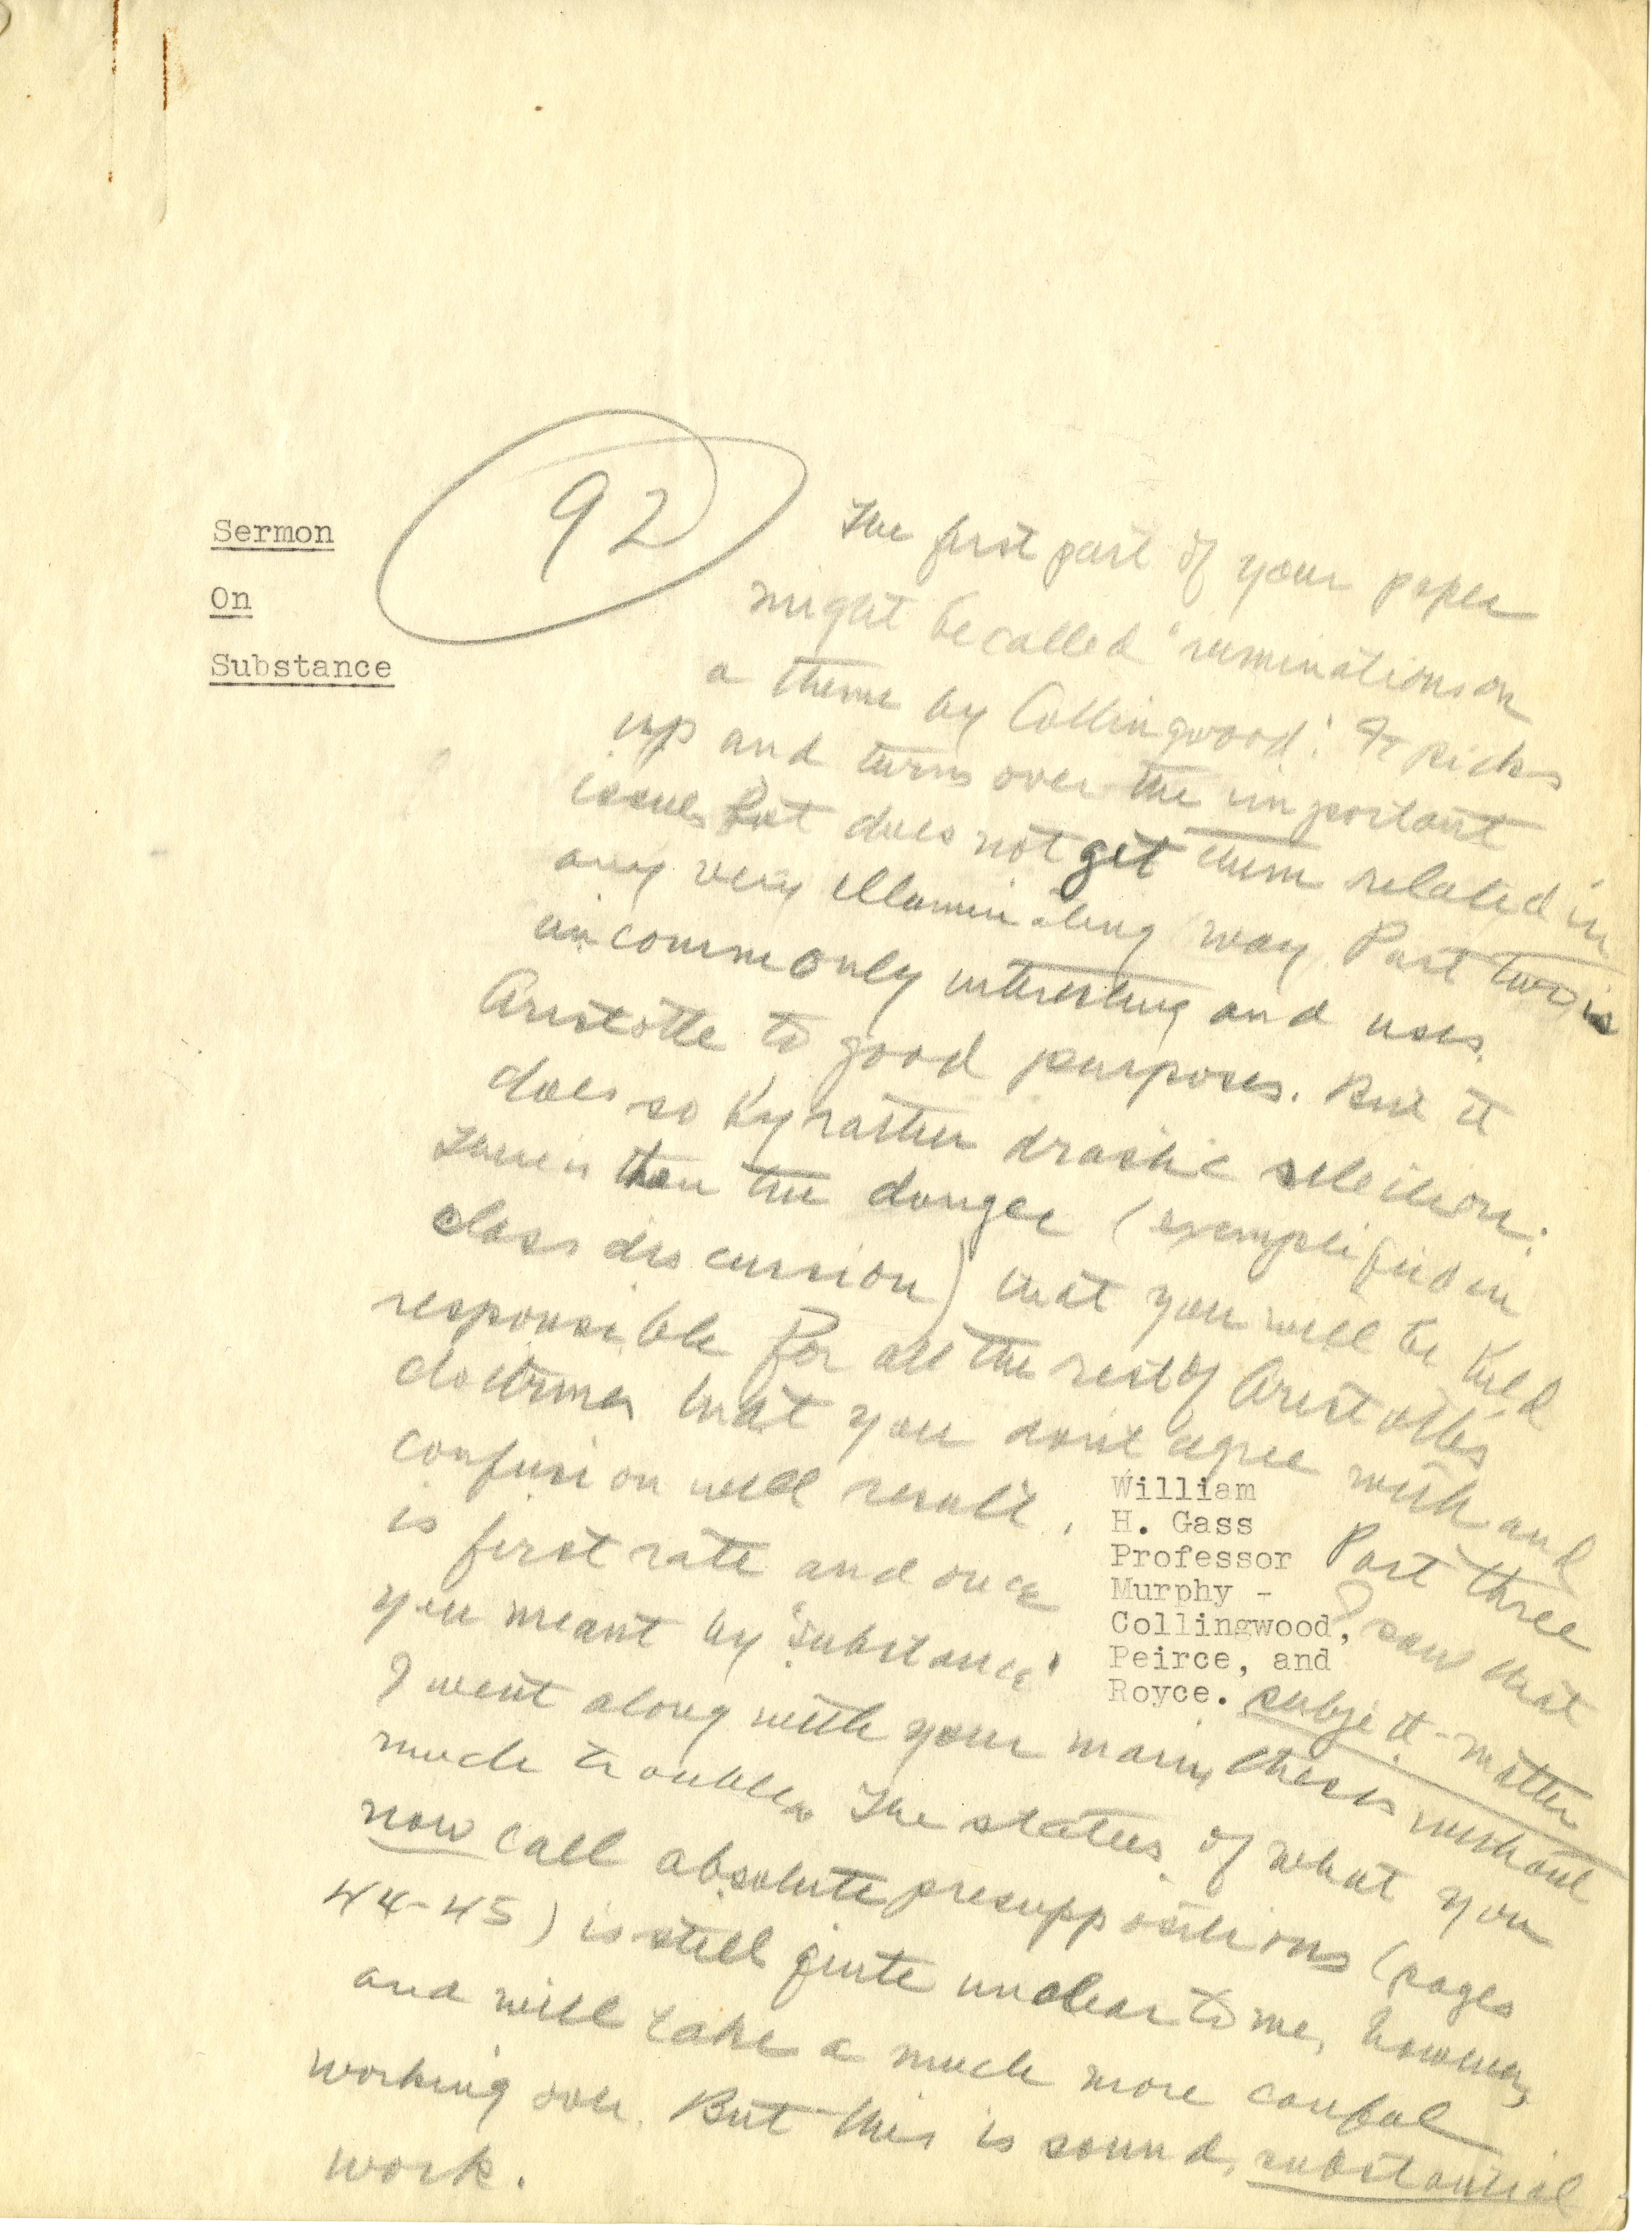 Sermon
On
Substance
92
The first part of your paper
might be called 'ruminations on
a theme by Collingwood'. It picks
up and turns over the important
issues but does not get them related in
any very illuminating way. Part two is
uncommonly interesting and uses
Aristotle to good purposes. But it
does so by rather drastic selection.
There is then the danger (exemplified in
class discussion) that you will be held
responsible for all the rest of Aristotle's
doctrines that you don't agree with and
confusion will result. Part three
is first rate and once I saw that
you meant by 'substance' subject-matter
I went along with your main thesis without
much trouble. The status of what you
now call absolute presuppositions (pages
44-45) is still quite unclear to me, however,
and will take a much more careful
working over. But this is sound, substantial
work.
William
H. Gass
Professor
Murphy -
Collingwood,
Peirce, and
Royce.